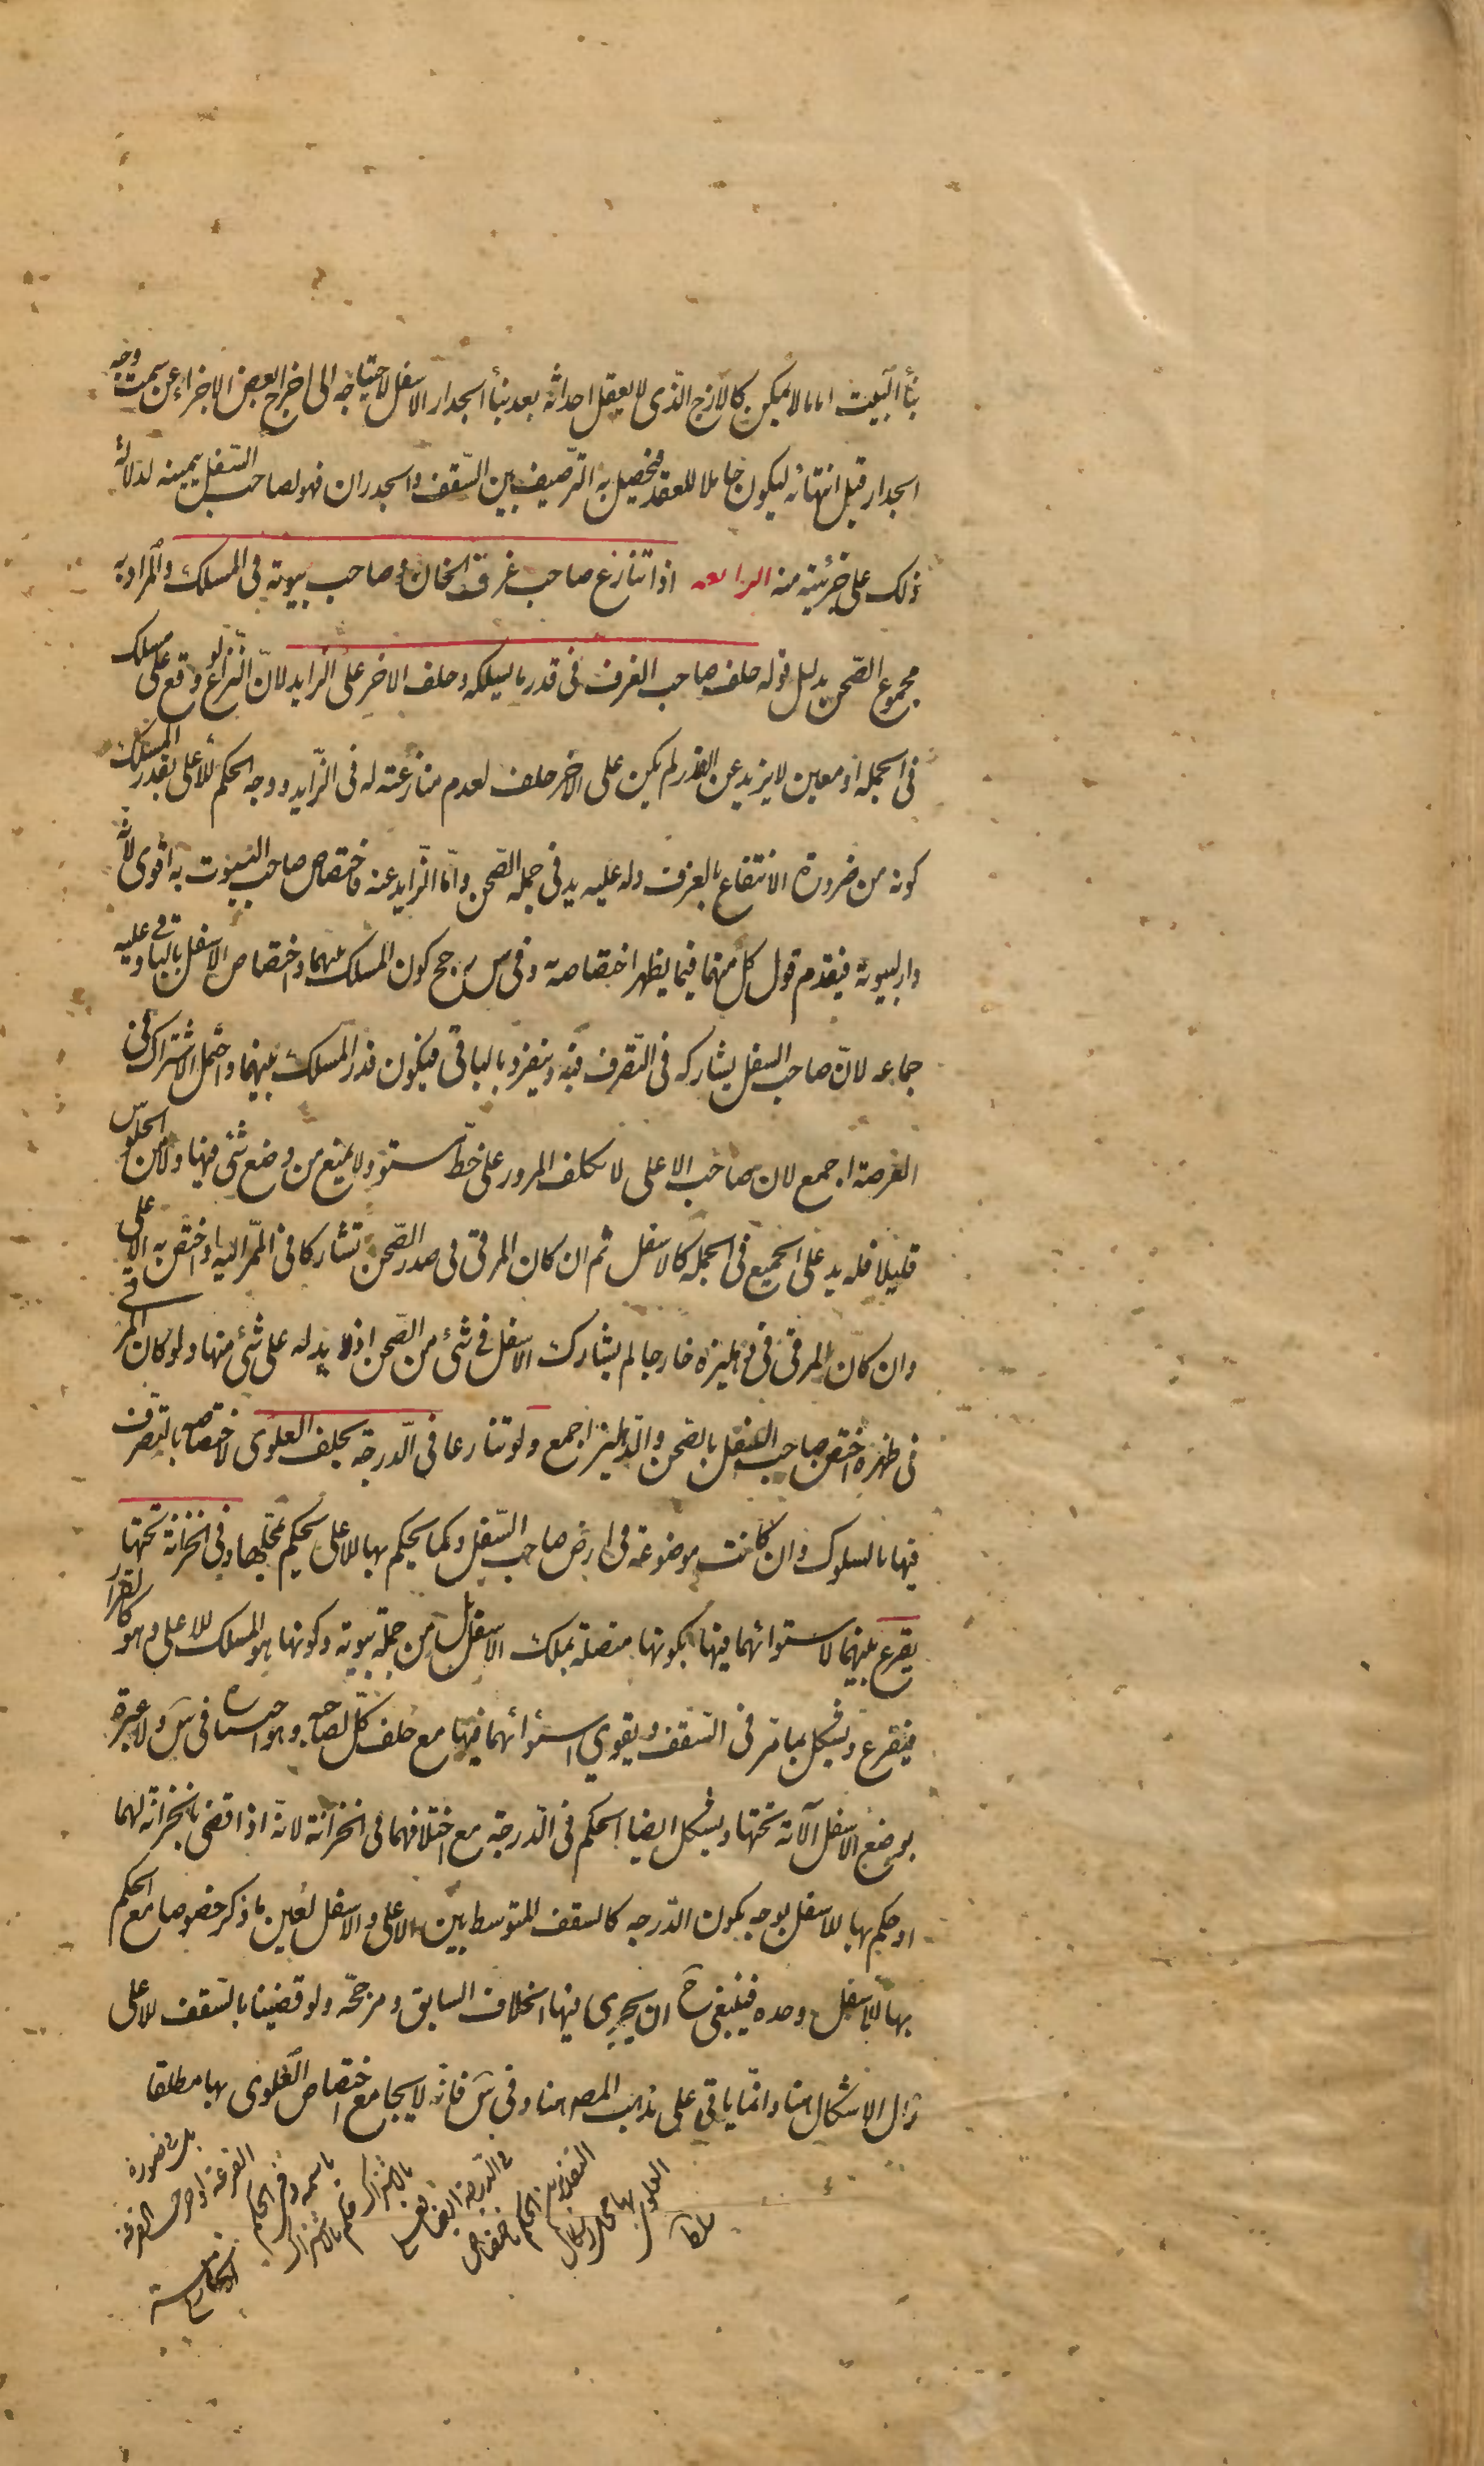 بنأ البيت اما ما لا يمكن كالازج الذى لا يعقل احداثه بعد بنأ الجدار الاسفل لاحتياجه الى اخراج بعض الاجزاء عن سمت وجه
الجدار قبل انتهائه ليكون حاملا للعقد فيحصل به الترصيف بين السقف والجدران فهو لصاحب السفل بيمينه لدلالة
ذلك على جزئيته منه الرابعه اذا تنازع صاحب غرف الخان وصاحب بيوته فى المسلك والمراد به
مجموع الصحن بدليل قوله حلف صاحب الغرف فى قدر ما يسلكه وحلف الاخر على الزايد لان النزاع لو وقع على مسلك
فى الجملة او معين لا يزيد عن القدر لم يكن على الاخر حلف لعدم منازعته له فى الزايد ووجه الحكم للاعلى بقدر المسلك
كونه من ضرورة الانتفاع بالغرف وله عليه يد فى جملة الصحن واما الزايد عنه فاختصاص صاحب البيوت به اقوى لانه
دار لبيوته فيقدم قول كل منهما فيما يظهر اختصاصه وفى س رجح كون المسلك بينهما واختصاص الاسفل بالباقى وعليه
جماعه لان صاحب السفل يشاركه فى التصرف فيه وينفرد بالباقى فيكون قدر المسلك بينهما واحتمل الاشتراك فى
العرصة اجمع لان صاحب الاعلى لا يكلف المرور على خط مستو ولا يمنع من وضع شئ فيها ولا من الجلوس
قليلا فله يد على الجميع فى الجملة كالاسفل ثم ان كان المرقى فى صدر الصحن تشاركا فى الممر اليه او اختص به الاعلى
وان كان المرقى فى دهليزه خارجا لم يشارك الاسفل فى شئ من الصحن اذ لا يد له على شئ منها ولو كان المرقى
فى ظهره اختص صاحب السفل بالصحن والدهليز اجمع ولو تنازعا فى الدرجة يحلف العلوى لاختصاصه بالتصرف
فيها بالسلوك وان كانت موضوعة فى ارض صاحب السفل وكما يحكم بها للاعلى يحكم بمحلها وفى الخزانة تحتها
يقرع بينهما لاستوائهما فيها بكونها متصلة بملك الاسفل بل من جملة بيوته وكونها هو المسلك للاعلى وهو كالقرار
فيقرع ويشكل بما مر فى السقف ويقوى استوائهما فيها مع حلف كل لصاحبه وهو اختياره فى س ولا عبرة
بوضع الاسفل آلاته تحتها ويشكل ايضا الحكم فى الدرجة مع اختلافهما فى الخزانة لانه اذا قضى بالخزانة لهما
او حكم بها للاسفل بوجه يكون الدرجة كالسقف المتوسط بين الاعلى والاسفل لعين ما ذكر خصوصا مع الحكم
بها للاسفل وحده فينبغى ح ان يجرى فيها الخلاف السابق ومرجحه ولو قضينا بالسقف للاعلى
زال الاشكال هنا وانما ياتى على مذهب المص هنا وفى س فانه لا يجامع اختصاص العلوى بها مطلقا